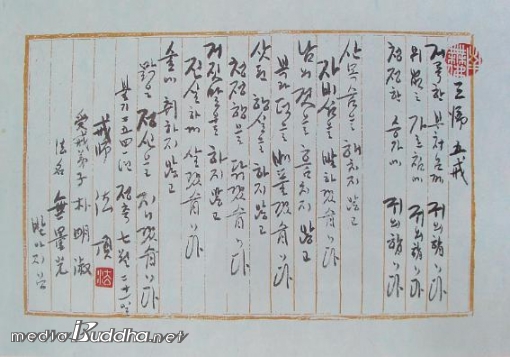 三歸五戒
거룩한 부처님께 귀의합니다
위없는 가르침에 귀의합니다
청정한 승가에 귀의합니다
산목숨을 해치지 않고
자비심을 발하겠습니다
남의 것을 훔치지 않고
복과 덕을 베풀겠습니다
삿된 행실을 하지 않고
청정행을 닦겠습니다
거짓말을 하지 않고
진실하게 살겠습니다
술에 취하지 않고
맑은 정신을 지니겠습니다
불기 二五四一년 정축 七월 二十一일
戒師 法頂
受戒弟子 朴明淑
法名 無量光
받아지님
media Buddha.net